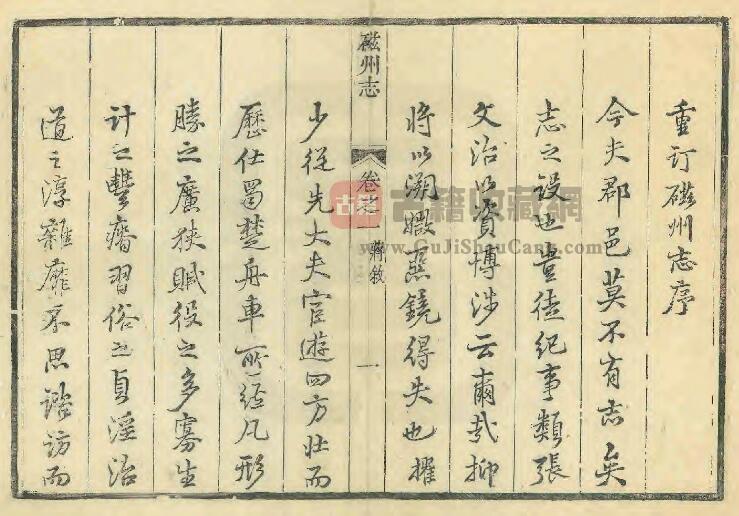 重訂磁州志序
今夫郡邑莫不有志矣
志之設也豈徒紀事類張
文治以資博涉云爾哉抑
將以溯媺慝鏡得失也擢
磁州志
卷之一
蔣敘
一
少從先大夫宦遊四方壯而
歷仕蜀楚舟車所經凡形
勝之廣狹賦役之多寡生
計之豐瘠習俗之貞淫治
道之淳雜靡不思諮訪而
古籍
古籍收藏網
www.GuJiShouCang.com